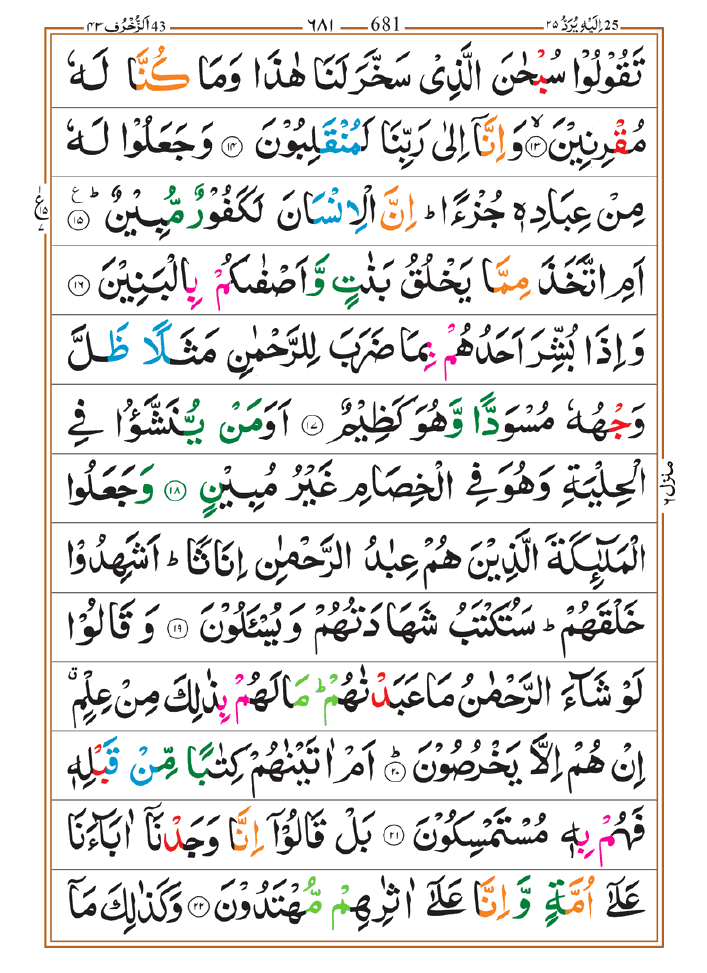 اِلَيْهِ يُرَدُّ ٢٥ 25 681 ٦٨١ اَلزُّخْرُف ٤٣ 43
تَقُوْلُوْا سُبْحٰنَ الَّذِيْ سَخَّرَ لَنَا هٰذَا وَمَا كُنَّا لَهٗ
مُقْرِنِيْنَ ۙ‏﴿١٣﴾ وَاِنَّاۤ اِلٰى رَبِّنَا لَمُنْقَلِبُوْنَ ﴿١٤﴾ وَجَعَلُوْا لَهٗ
مِنْ عِبَادِهٖ جُزْءًا ؕ اِنَّ الْاِنْسَانَ لَكَفُوْرٌ مُّبِيْنٌ ؕ ﴿١٥﴾ ع
اَمِ اتَّخَذَ مِمَّا يَخْلُقُ بَنٰتٍ وَّاَصْفٰىكُمْ بِالْبَنِيْنَ ﴿١٦﴾
وَاِذَا بُشِّرَ اَحَدُهُمْ بِمَا ضَرَبَ لِلرَّحْمٰنِ مَثَلًا ظَلَّ
وَجْهُهٗ مُسْوَدًّا وَّهُوَ كَظِيْمٌ ﴿١٧﴾ اَوَمَنْ يُّنَشَّؤُا فِي
الْحِلْيَةِ وَهُوَ فِي الْخِصَامِ غَيْرُ مُبِيْنٍ ﴿١٨﴾ وَجَعَلُوا
الْمَلٰٓئِكَةَ الَّذِيْنَ هُمْ عِبٰدُ الرَّحْمٰنِ اِنَاثًا ؕ اَشَهِدُوْا
خَلْقَهُمْ ؕ سَتُكْتَبُ شَهَادَتُهُمْ وَيُسْـَٔلُوْنَ ﴿١٩﴾ وَقَالُوْا
لَوْ شَآءَ الرَّحْمٰنُ مَا عَبَدْنٰهُمْ ؕ مَا لَهُمْ بِذٰلِكَ مِنْ عِلْمٍ ۗ
اِنْ هُمْ اِلَّا يَخْرُصُوْنَ ؕ ﴿٢٠﴾ اَمْ اٰتَيْنٰهُمْ كِتٰبًا مِّنْ قَبْلِهٖ
فَهُمْ بِهٖ مُسْتَمْسِكُوْنَ ﴿٢١﴾ بَلْ قَالُوْۤا اِنَّا وَجَدْنَاۤ اٰبَآءَنَا
عَلٰٓى اُمَّةٍ وَّاِنَّا عَلٰٓى اٰثٰرِهِمْ مُّهْتَدُوْنَ ﴿٢٢﴾ وَكَذٰلِكَ مَاۤ
ع ١٥ ٧
منزل ٦